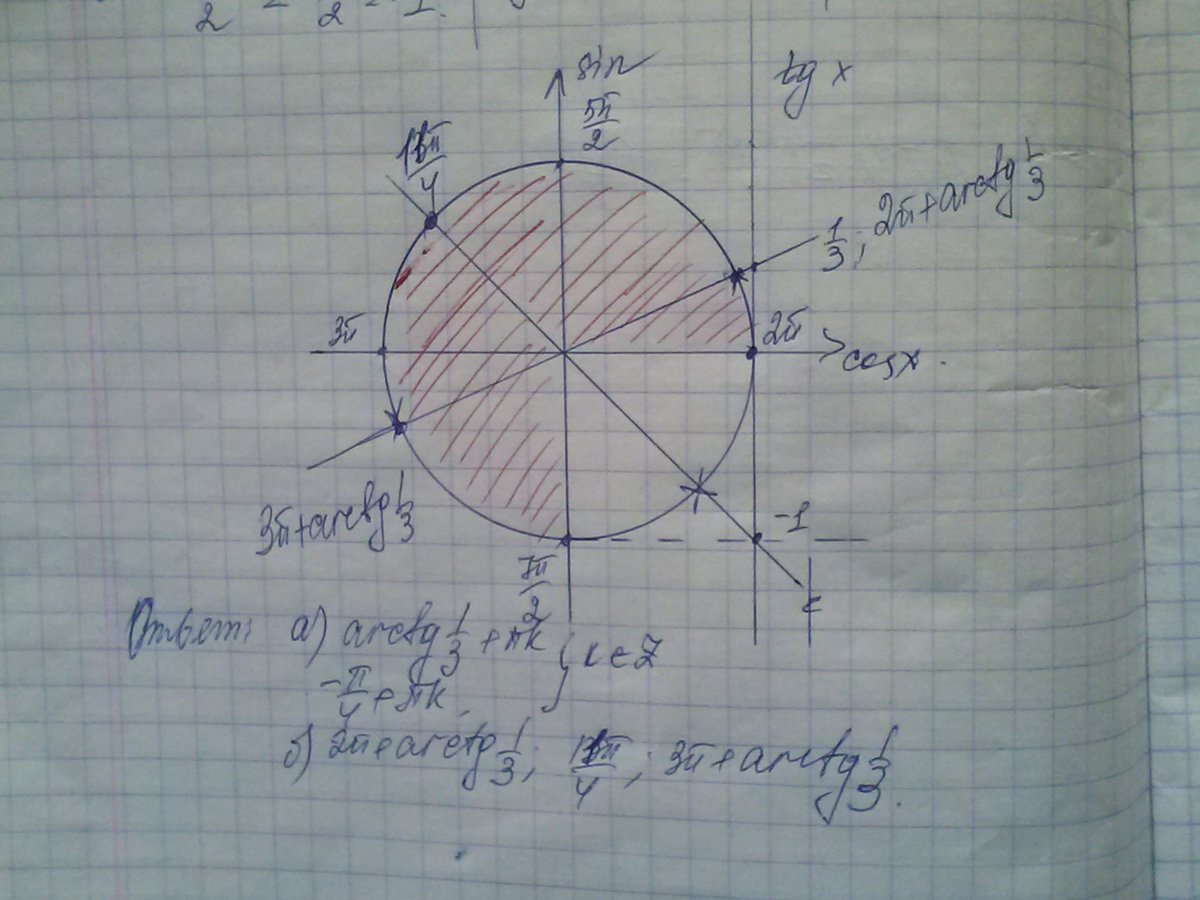 2 = 2 = 1.
sin
tg x
5π/2
11π/4
1/3; 2π+arctg 1/3
3π
2π
cosx
3π+arctg 1/3
-1
7π/2
Ответ: а) arctg 1/3 + πk
-π/4 + πk, } k∈Z
б) 2π+arctg 1/3; 11π/4; 3π+arctg 1/3.